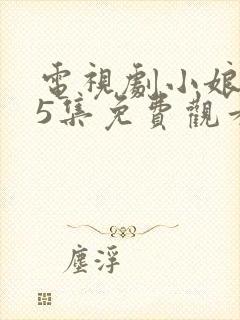 電視劇小娘
5集免費觀看
塵浮